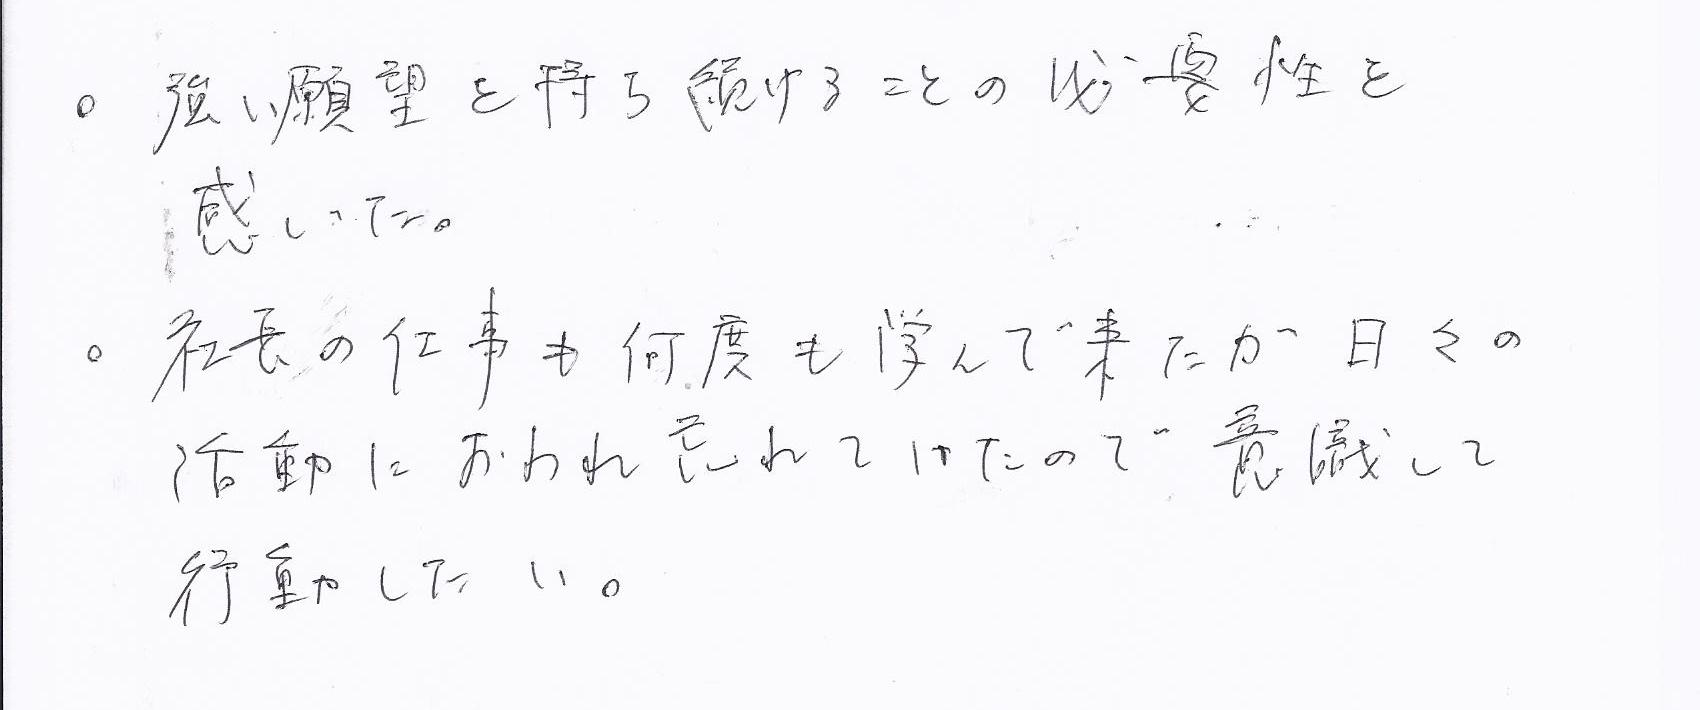 。強い願望を持ち続けることの必要性を
感じた。
。社長の仕事も何度も学んで来たが日々の
活動におわれ忘れていたので意識して
行動したい。